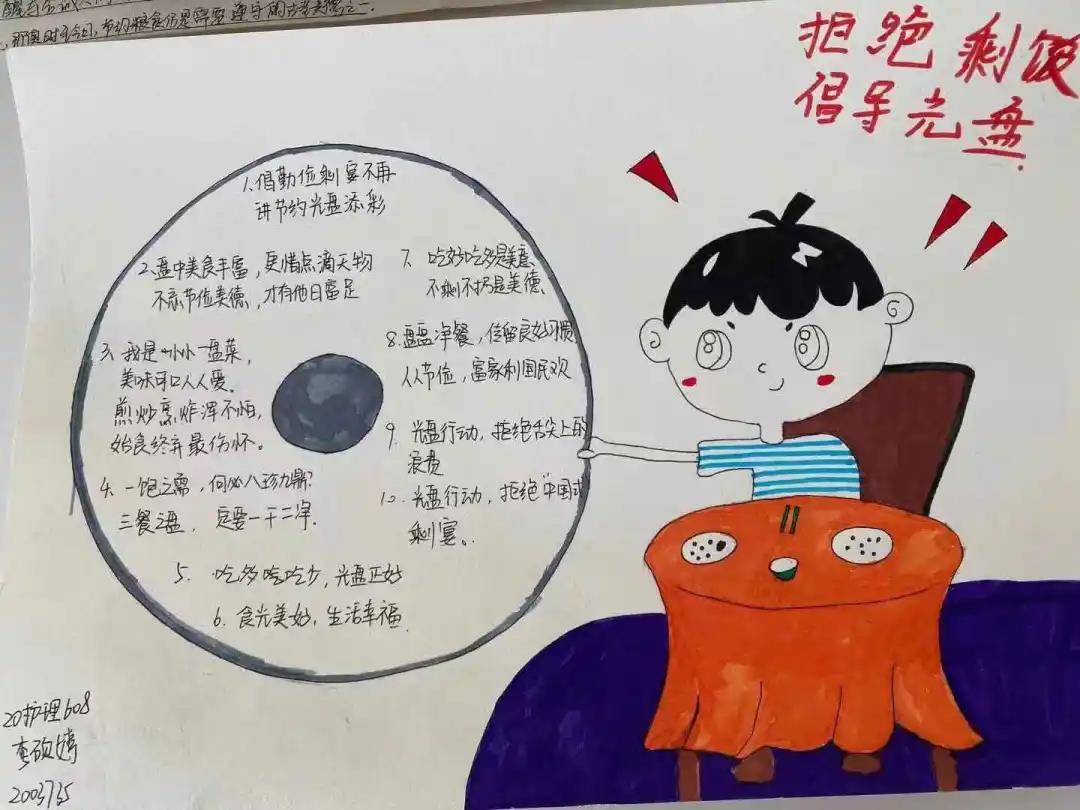 节约粮食仍是需要遵守的
拒绝剩饭
倡导光盘
1.倡勤俭剩宴不再
讲节约光盘添彩
2.盘中美食丰富,更惜点滴天物
不忘节俭美德,才有他日富足
3.我是小小一盘菜,
美味可口人人爱。
煎炒烹炸浑不怕,
始食终弃最伤怀。
4.一饱之需,何必八珍九鼎?
三餐之盘,定要一干二净.
5.吃多吃少,光盘正好
6.食光美好,生活幸福
7.吃好吃多是美意、
不剩不扔是美德、
8.盘盘净餐,传留良好习惯
人人节俭,富家利国民欢
9.光盘行动,拒绝舌尖上的
浪费
10.光盘行动,拒绝"中国式
剩宴。
20护理608
2003735